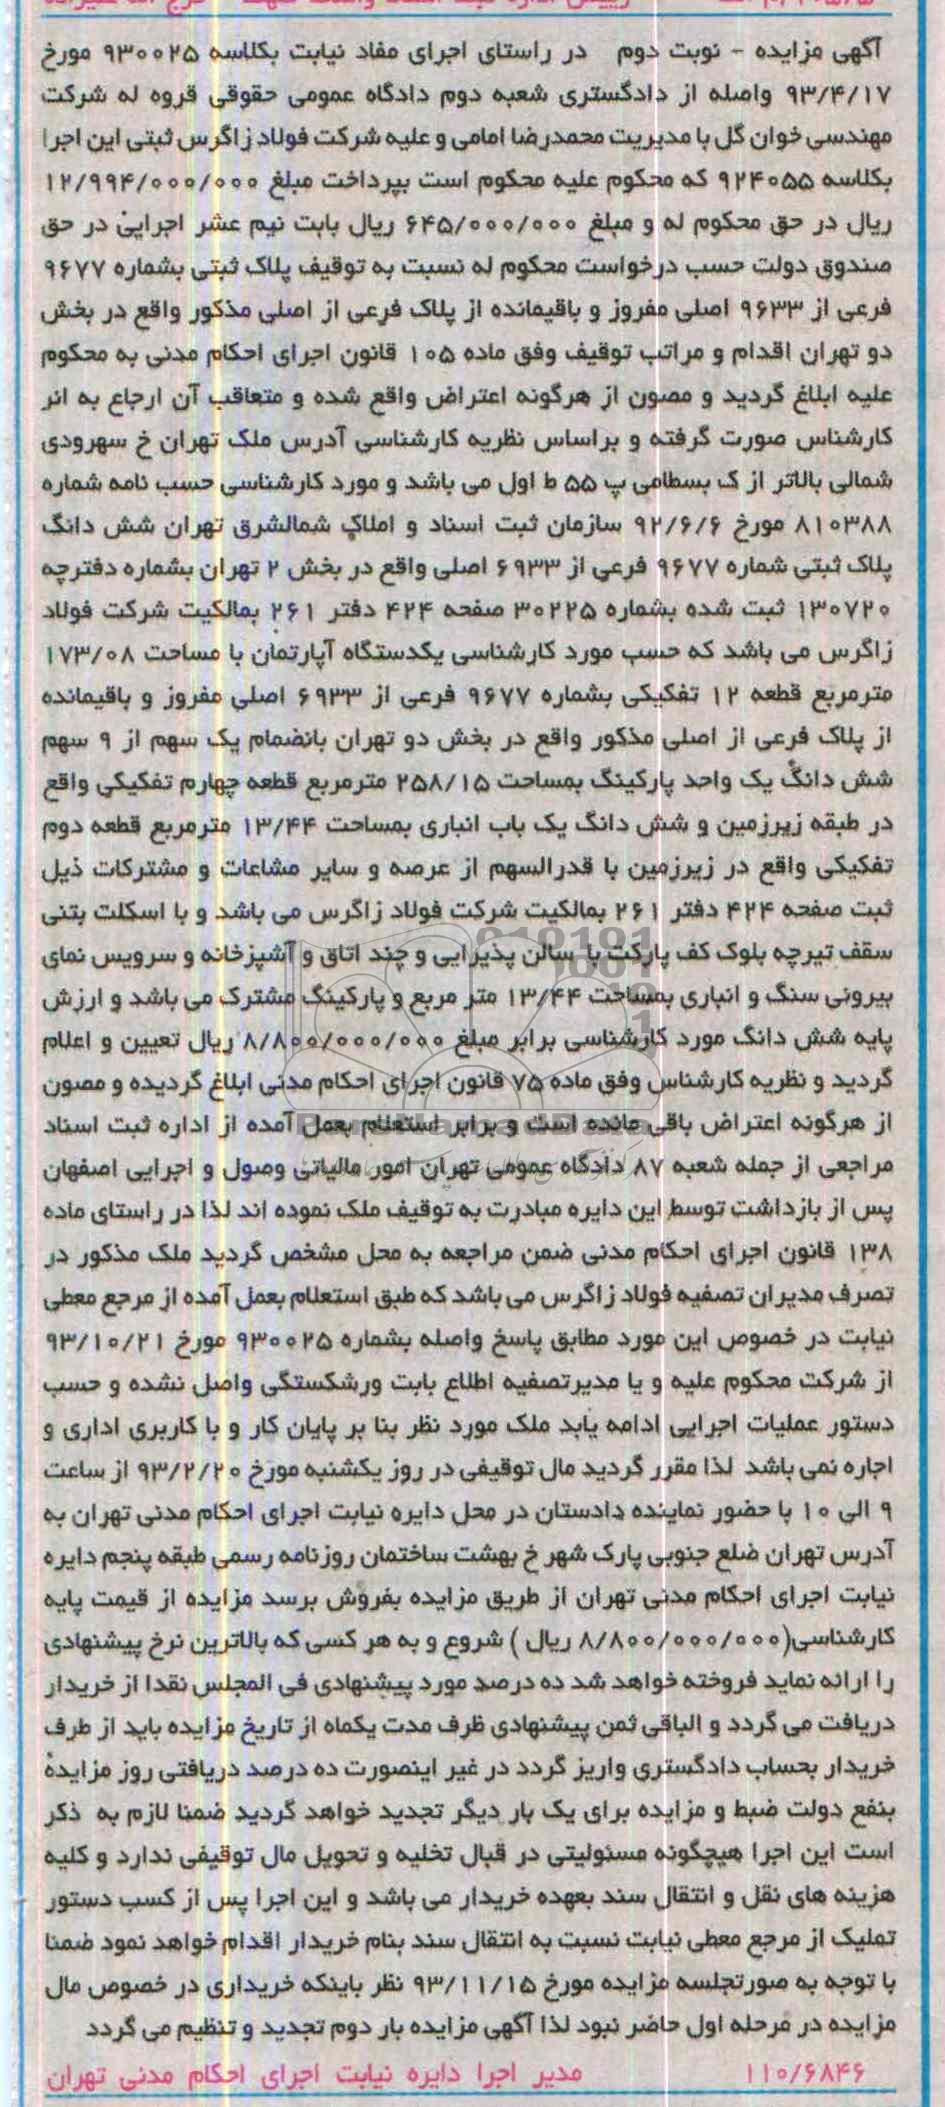 آگهی مزایده - نوبت دوم در راستای اجرای مفاد نیابت بکلاسه ۹۳۰۰۲۵ مورخ
۹۳/۴/۱۷ واصله از دادگستری شعبه دوم دادگاه عمومی حقوقی قروه له شرکت
مهندسی خوان گل با مدیریت محمدرضا امامی و علیه شرکت فولاد زاگرس ثبتی این اجرا
بکلاسه ۹۲۴۰۵۵ که محکوم علیه محکوم است بپرداخت مبلغ ۱۲/۹۹۴/۰۰۰/۰۰۰
ریال در حق محکوم له و مبلغ ۶۴۵/۰۰۰/۰۰۰ ریال بابت نیم عشر اجرایی در حق
صندوق دولت حسب درخواست محکوم له نسبت به توقیف پلاک ثبتی بشماره ۹۶۷۷
فرعی از ۹۶۳۳ اصلی مفروز و باقیمانده از پلاک فرعی از اصلی مذکور واقع در بخش
دو تهران اقدام و مراتب توقیف وفق ماده ۱۰۵ قانون اجرای احکام مدنی به محکوم
علیه ابلاغ گردید و مصون از هرگونه اعتراض واقع شده و متعاقب آن ارجاع به انر
کارشناس صورت گرفته و براساس نظریه کارشناسی آدرس ملک تهران خ سهرودی
شمالی بالاتر از ک بسطامی پ ۵۵ ط اول می باشد و مورد کارشناسی حسب نامه شماره
۸۱۰۳۸۸ مورخ ۹۲/۶/۶ سازمان ثبت اسناد و املاک شمالشرق تهران شش دانگ
پلاک ثبتی شماره ۹۶۷۷ فرعی از ۶۹۳۳ اصلی واقع در بخش ۲ تهران بشماره دفترچه
۱۳۰۷۲۰ ثبت شده بشماره ۳۰۲۲۵ صفحه ۴۲۴ دفتر ۲۶۱ بمالکیت شرکت فولاد
زاگرس می باشد که حسب مورد کارشناسی یکدستگاه آپارتمان با مساحت ۱۷۳/۰۸
مترمربع قطعه ۱۲ تفکیکی بشماره ۹۶۷۷ فرعی از ۶۹۳۳ اصلی مفروز و باقیمانده
از پلاک فرعی از اصلی مذکور واقع در بخش دو تهران بانضمام یک سهم از ۹ سهم
شش دانگ یک واحد پارکینگ بمساحت ۲۵۸/۱۵ مترمربع قطعه چهارم تفکیکی واقع
در طبقه زیرزمین و شش دانگ یک باب انباری بمساحت ۱۳/۴۴ مترمربع قطعه دوم
تفکیکی واقع در زیرزمین با قدرالسهم از عرصه و سایر مشاعات و مشترکات ذیل
ثبت صفحه ۴۲۴ دفتر ۲۶۱ بمالکیت شرکت فولاد زاگرس می باشد و با اسکلت بتنی
سقف تیرچه بلوک کف پارکت با سالن پذیرایی و چند اتاق و آشپزخانه و سرویس نمای
بیرونی سنگ و انباری بمساحت ۱۳/۴۴ متر مربع و پارکینگ مشترک می باشد و ارزش
پایه شش دانگ مورد کارشناسی برابر مبلغ ۸/۸۰۰/۰۰۰/۰۰۰ ریال تعیین و اعلام
گردید و نظریه کارشناس وفق ماده ۷۵ قانون اجرای احکام مدنی ابلاغ گردیده و مصون
از هرگونه اعتراض باقی مانده است و برابر استعلام بعمل آمده از اداره ثبت اسناد
مراجعی از جمله شعبه ۸۷ دادگاه عمومی تهران امور مالیاتی وصول و اجرایی اصفهان
پس از بازداشت توسط این دایره مبادرت به توقیف ملک نموده اند لذا در راستای ماده
۱۳۸ قانون اجرای احکام مدنی ضمن مراجعه به محل مشخص گردید ملک مذکور در
تصرف مدیران تصفیه فولاد زاگرس می باشد که طبق استعلام بعمل آمده از مرجع معطی
نیابت در خصوص این مورد مطابق پاسخ واصله بشماره ۹۳۰۰۲۵ مورخ ۹۳/۱۰/۲۱
از شرکت محکوم علیه و یا مدیرتصفیه اطلاع بابت ورشکستگی واصل نشده و حسب
دستور عملیات اجرایی ادامه یابد ملک مورد نظر بنا بر پایان کار و با کاربری اداری و
اجاره نمی باشد لذا مقرر گردید مال توقیفی در روز یکشنبه مورخ ۹۳/۲/۲۰ از ساعت
۹ الی ۱۰ با حضور نماینده دادستان در محل دایره نیابت اجرای احکام مدنی تهران به
آدرس تهران ضلع جنوبی پارک شهر خ بهشت ساختمان روزنامه رسمی طبقه پنجم دایره
نیابت اجرای احکام مدنی تهران از طریق مزایده بفروش برسد مزایده از قیمت پایه
کارشناسی(۸/۸۰۰/۰۰۰/۰۰۰ ریال ) شروع و به هر کسی که بالاترین نرخ پیشنهادی
را ارائه نماید فروخته خواهد شد ده درصد مورد پیشنهادی فی المجلس نقدا از خریدار
دریافت می گردد و الباقی ثمن پیشنهادی ظرف مدت یکماه از تاریخ مزایده باید از طرف
خریدار بحساب دادگستری واریز گردد در غیر اینصورت ده درصد دریافتی روز مزایده
بنفع دولت ضبط و مزایده برای یک بار دیگر تجدید خواهد گردید ضمنا لازم به ذکر
است این اجرا هیچگونه مسئولیتی در قبال تخلیه و تحویل مال توقیفی ندارد و کلیه
هزینه های نقل و انتقال سند بعهده خریدار می باشد و این اجرا پس از کسب دستور
تملیک از مرجع معطی نیابت نسبت به انتقال سند بنام خریدار اقدام خواهد نمود ضمنا
با توجه به صورتجلسه مزایده مورخ ۹۳/۱۱/۱۵ نظر باینکه خریداری در خصوص مال
مزایده در مرحله اول حاضر نبود لذا آگهی مزایده بار دوم تجدید و تنظیم می گردد
۱۱۰/۶۸۴۶ مدیر اجرا دایره نیابت اجرای احکام مدنی تهران